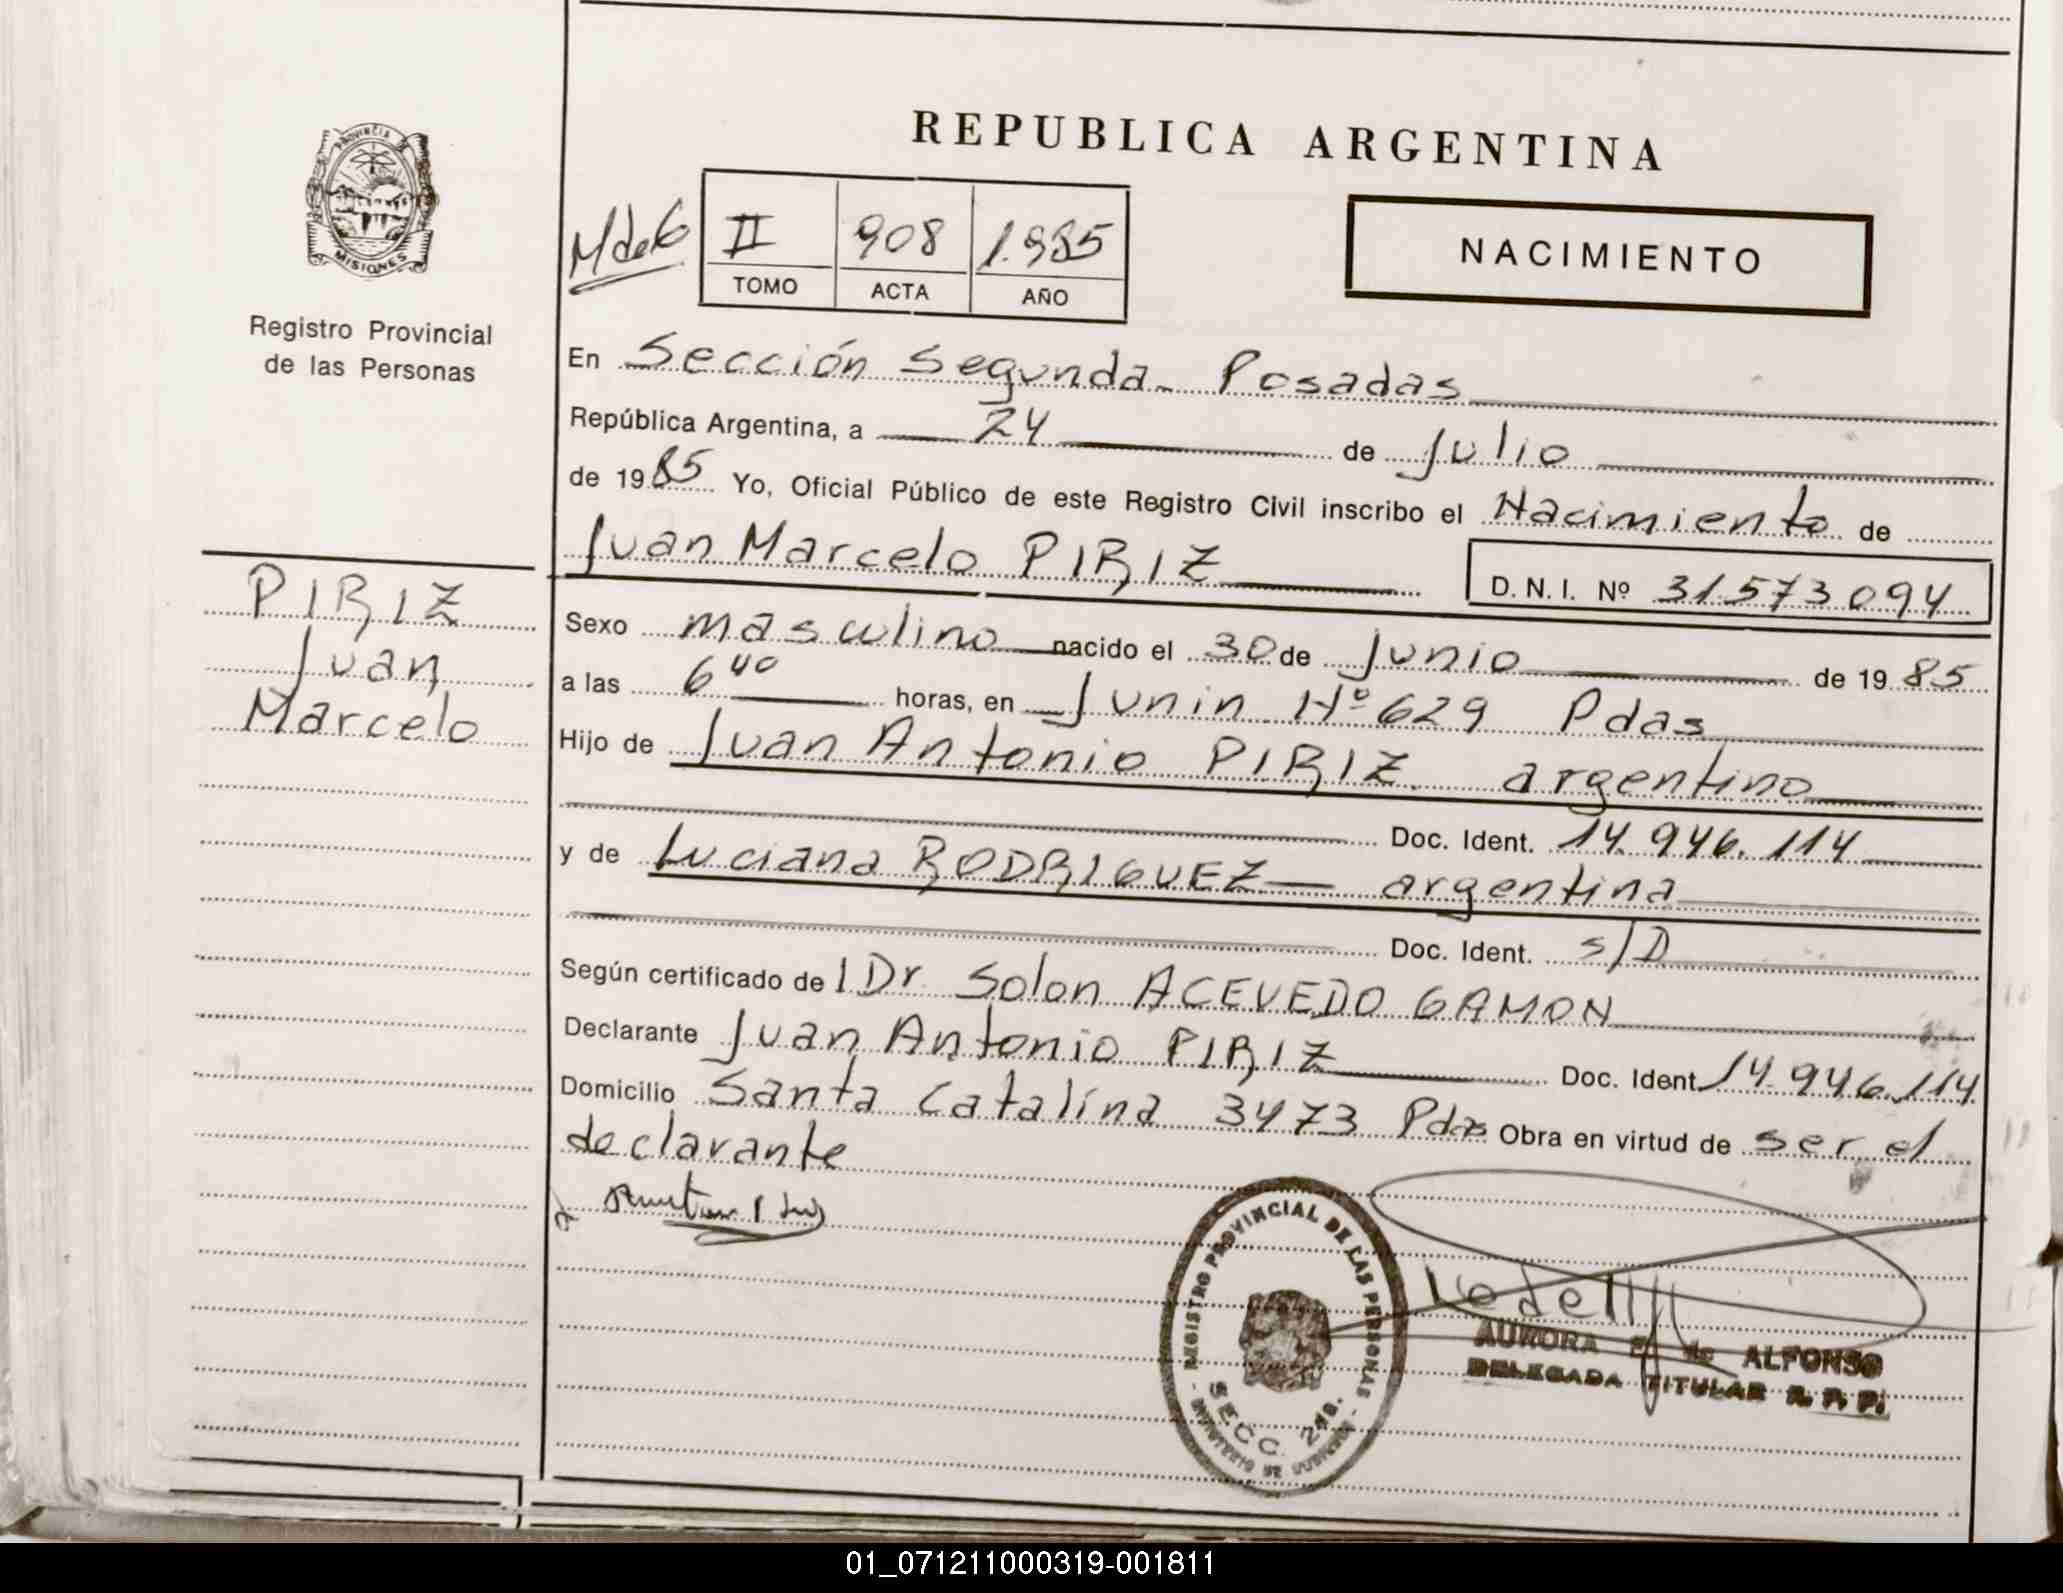 REPUBLICA ARGENTINA
PROVINCIA DE
MISIONES
Registro Provincial
de las Personas
MdeG
II 908 1.985
TOMO ACTA AÑO
NACIMIENTO
En Sección Segunda - Posadas
República Argentina, a 24 de Julio
de 1985 Yo, Oficial Público de este Registro Civil inscribo el Nacimiento de
Juan Marcelo PIRIZ D. N. I. Nº 31.573.094
PIRIZ
Juan
Marcelo
Sexo masculino nacido el 30 de Junio de 1985
a las 6 40 horas, en Junin Nº 629 Pdas
Hijo de Juan Antonio PIRIZ. argentino
Doc. Ident. 14.946.114
y de Luciana RODRIGUEZ — argentina
Doc. Ident. s/D
Según certificado del Dr. Solon ACEVEDO GAMON
Declarante Juan Antonio PIRIZ Doc. Ident. 14.946.114
Domicilio Santa Catalina 3473 Pdas Obra en virtud de ser el
declarante
REGISTRO PROVINCIAL DE LAS PERSONAS
SECC. 2da.
- MINISTERIO DE GOBIERNO -
AURORA de ALFONSO
DELEGADA TITULAR R. P. P.
01_071211000319-001811